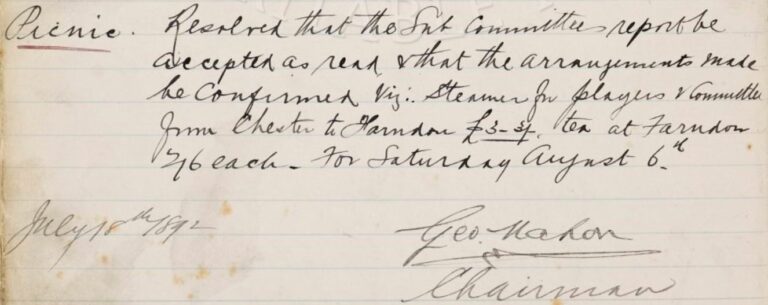 Picnic. Resolved that the Sub Committees report be
accepted as read & that the arrangements made
be Confirmed Viz:. Steamer for players & Committee
from Chester to Farndon £3-3/, tea at Farndon
2/6 each - For Saturday August 6th
July 18th 1892
Geo. Mahon
Chairman